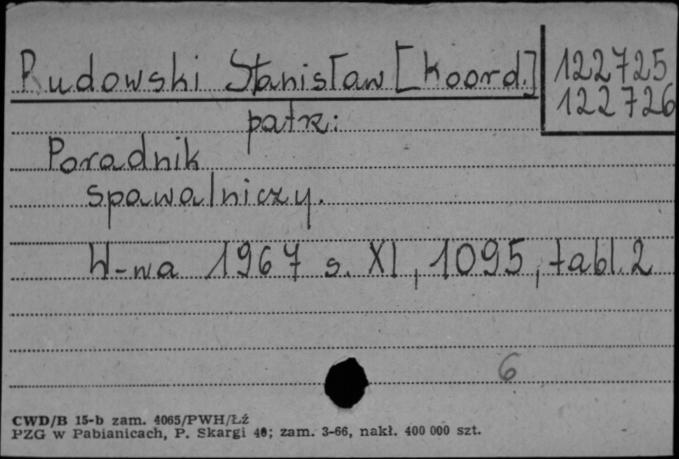 Rudowski Stanisław [Koord.]
122725
122726
patrz:
Poradnik
spawalniczy.
W-wa 1967 s. XI, 1095, tabl. 2
6
CWD/B 15-b zam. 4065/PWH/Łź
PZG w Pabianicach, P. Skargi 40; zam. 3-66, nakł. 400 000 szt.